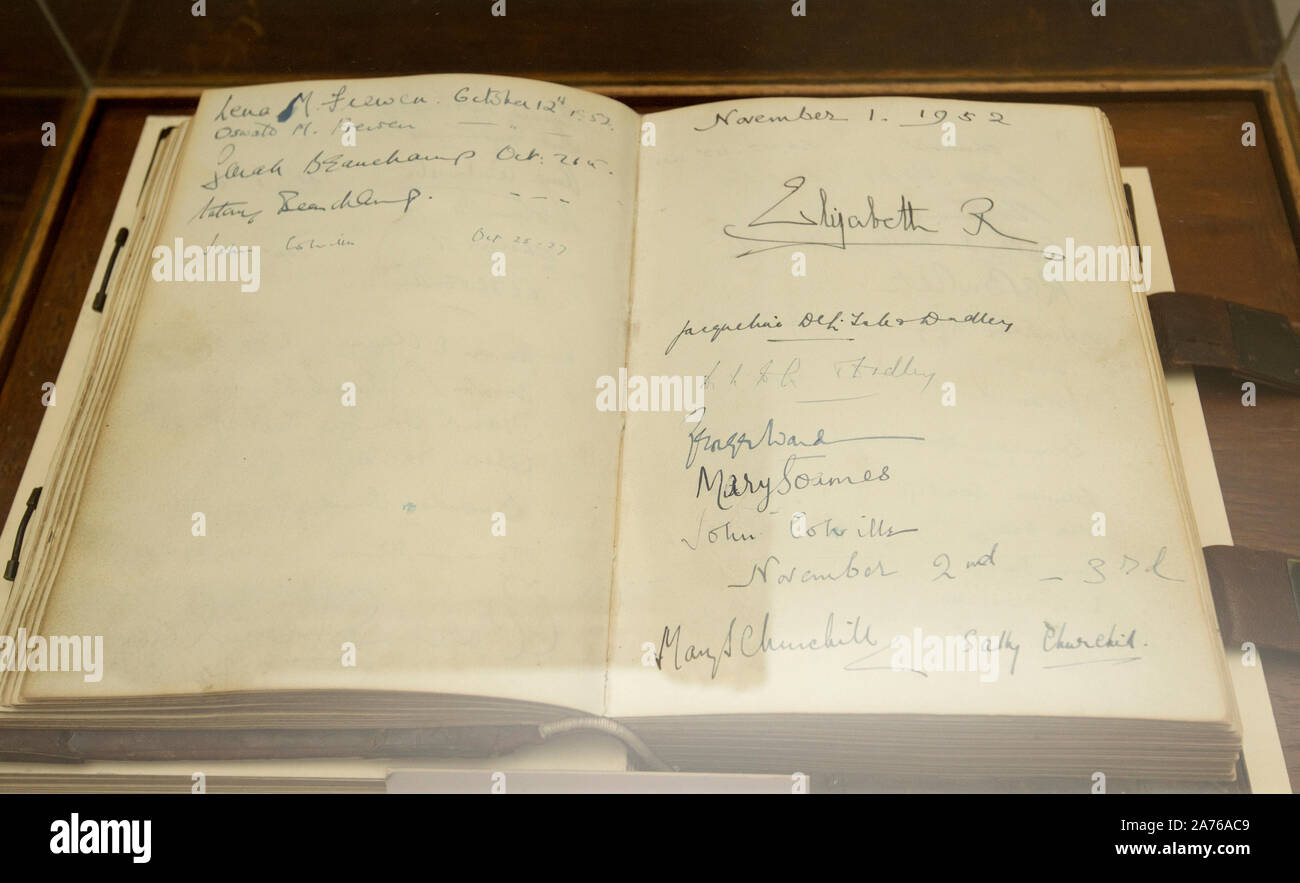 Lena M. Frewen. October 12th 1952.
Oswald M. Frewen — " —
Sarah Beauchamp Oct: 26th.
Antony Beauchamp. - - -
John Colville Oct 25-27
November 1. 1952
Elizabeth R
Jacqueline Dudley
Dudley
George Ward
Mary Soames
John Colville
November 2nd - 3rd
Mary S Churchill Sally Churchill.
a alamy
alamy
Image ID: 2A76AC9
www.alamy.com